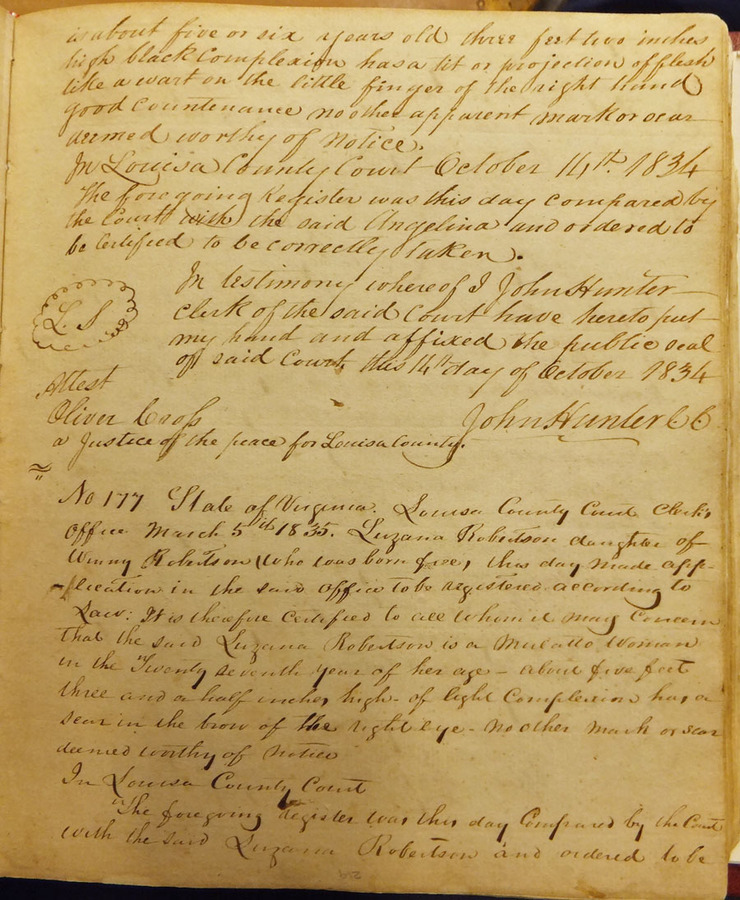 is about five or six years old three feet two inches
high black Complexion has a tit or projection of flesh
like a wart on the little finger of the right hand
good Countenance no other apparent mark or scar
deemed worthy of Notice.
In Louisa County Court October 14th 1834
The foregoing Register was this day compared by
the Court with the said Angelina and ordered to
be Certified to be correctly taken.
In testimony whereof I John Hunter
L. S
Clerk of the said Court have hereto put
my hand and affixed the public seal
of said Court, this 14th day of October 1834
Attest
Oliver Cross John Hunter CC
a Justice of the peace for Louisa County.
No 177 State of Virginia. Louisa County Court Clerk's
Office March 5th 1835. Luzana Robertson daughter of
Winny Robertson (who was born free, this day made app-
-lication in the said office to be registered according to
Law: It is therefore Certified to all whom it may Concern
that the said Luzana Robertson is a Mulatto Woman
in the Twenty seventh year of her age - about five feet
three and a half inches high - of light Complexion has a
scar in the brow of the right eye - no other mark or scar
deemed worthy of notice
In Louisa County Court
The foregoing Register was this day Compared by the Court
with the said Luzana Robertson and ordered to be